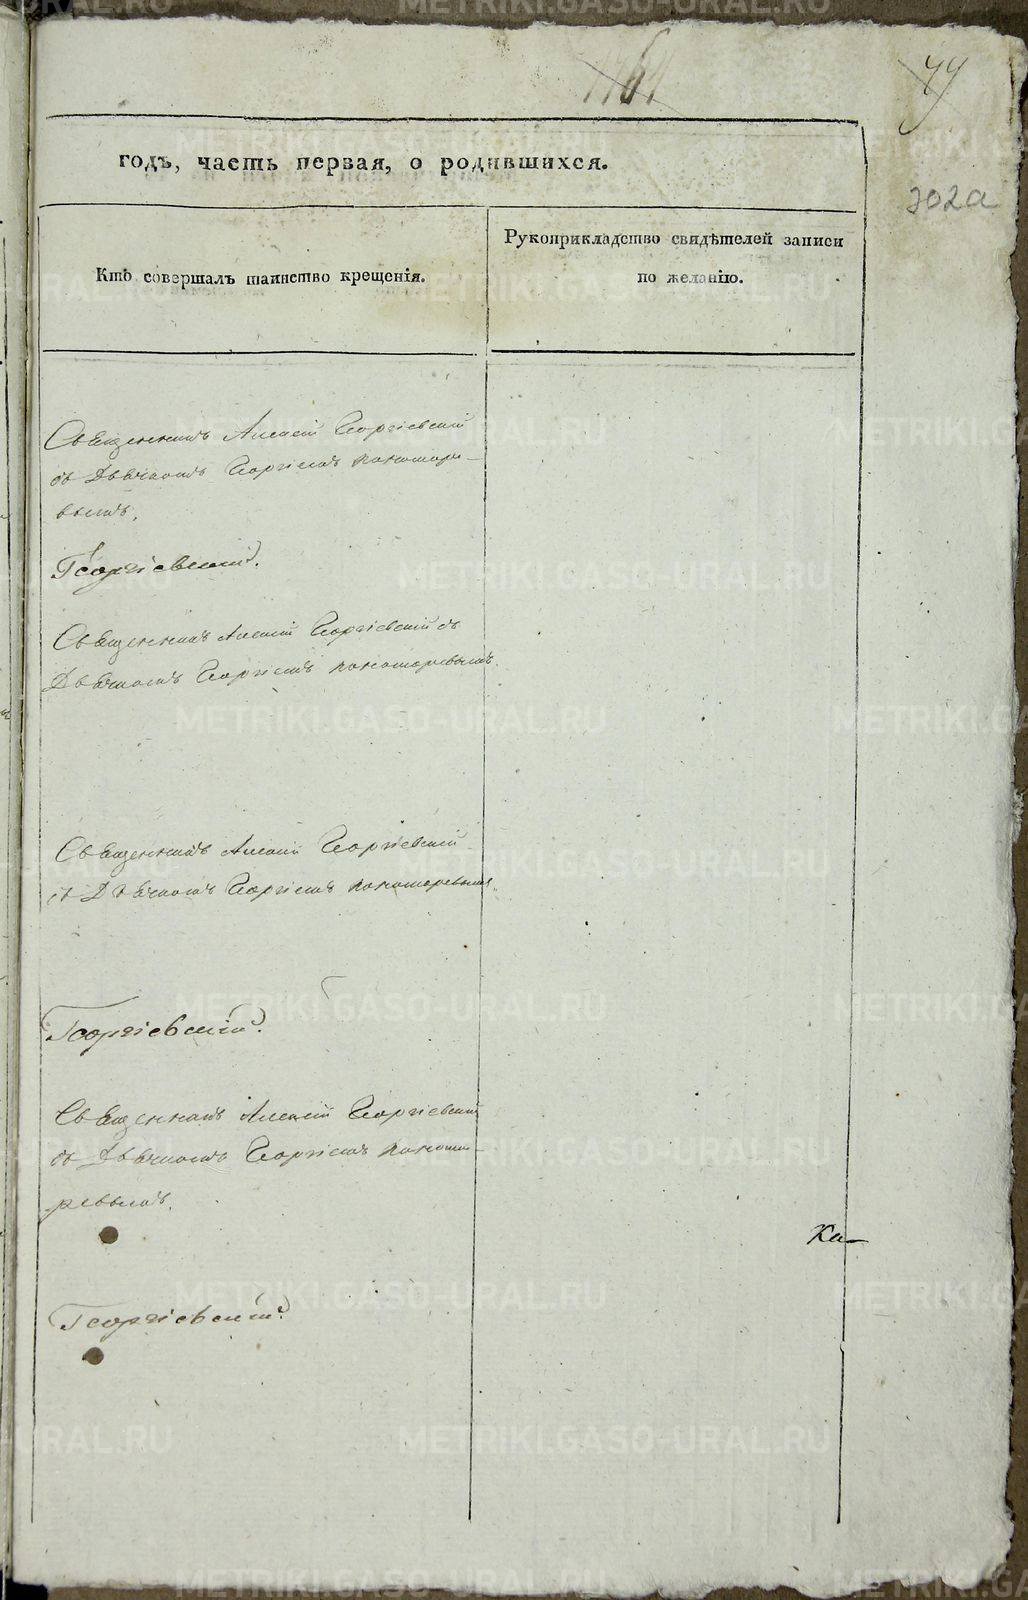 1161
79
302а
годъ, часть первая, о родившихся.
Кто совершалъ таинство крещенія.
Рукоприкладство свидѣтелей записи
по желанію.
Священникъ Алексій Георгіевскій
съ Дьячкомъ Георгіемъ Пономаре-
вымъ.
Георгіевскій.
Священникъ Алексій Георгіевскій съ
Дьячкомъ Георгіемъ Пономаревымъ.
Священникъ Алексій Георгіевскій
съ Дьячкомъ Георгіемъ Пономаревымъ.
Георгіевскій.
Священникъ Алексій Георгіевскій
съ Дьячкомъ Георгіемъ Понома-
ревымъ.
Ка-
Георгіевскій.
METRIKI.GASO-URAL.RU